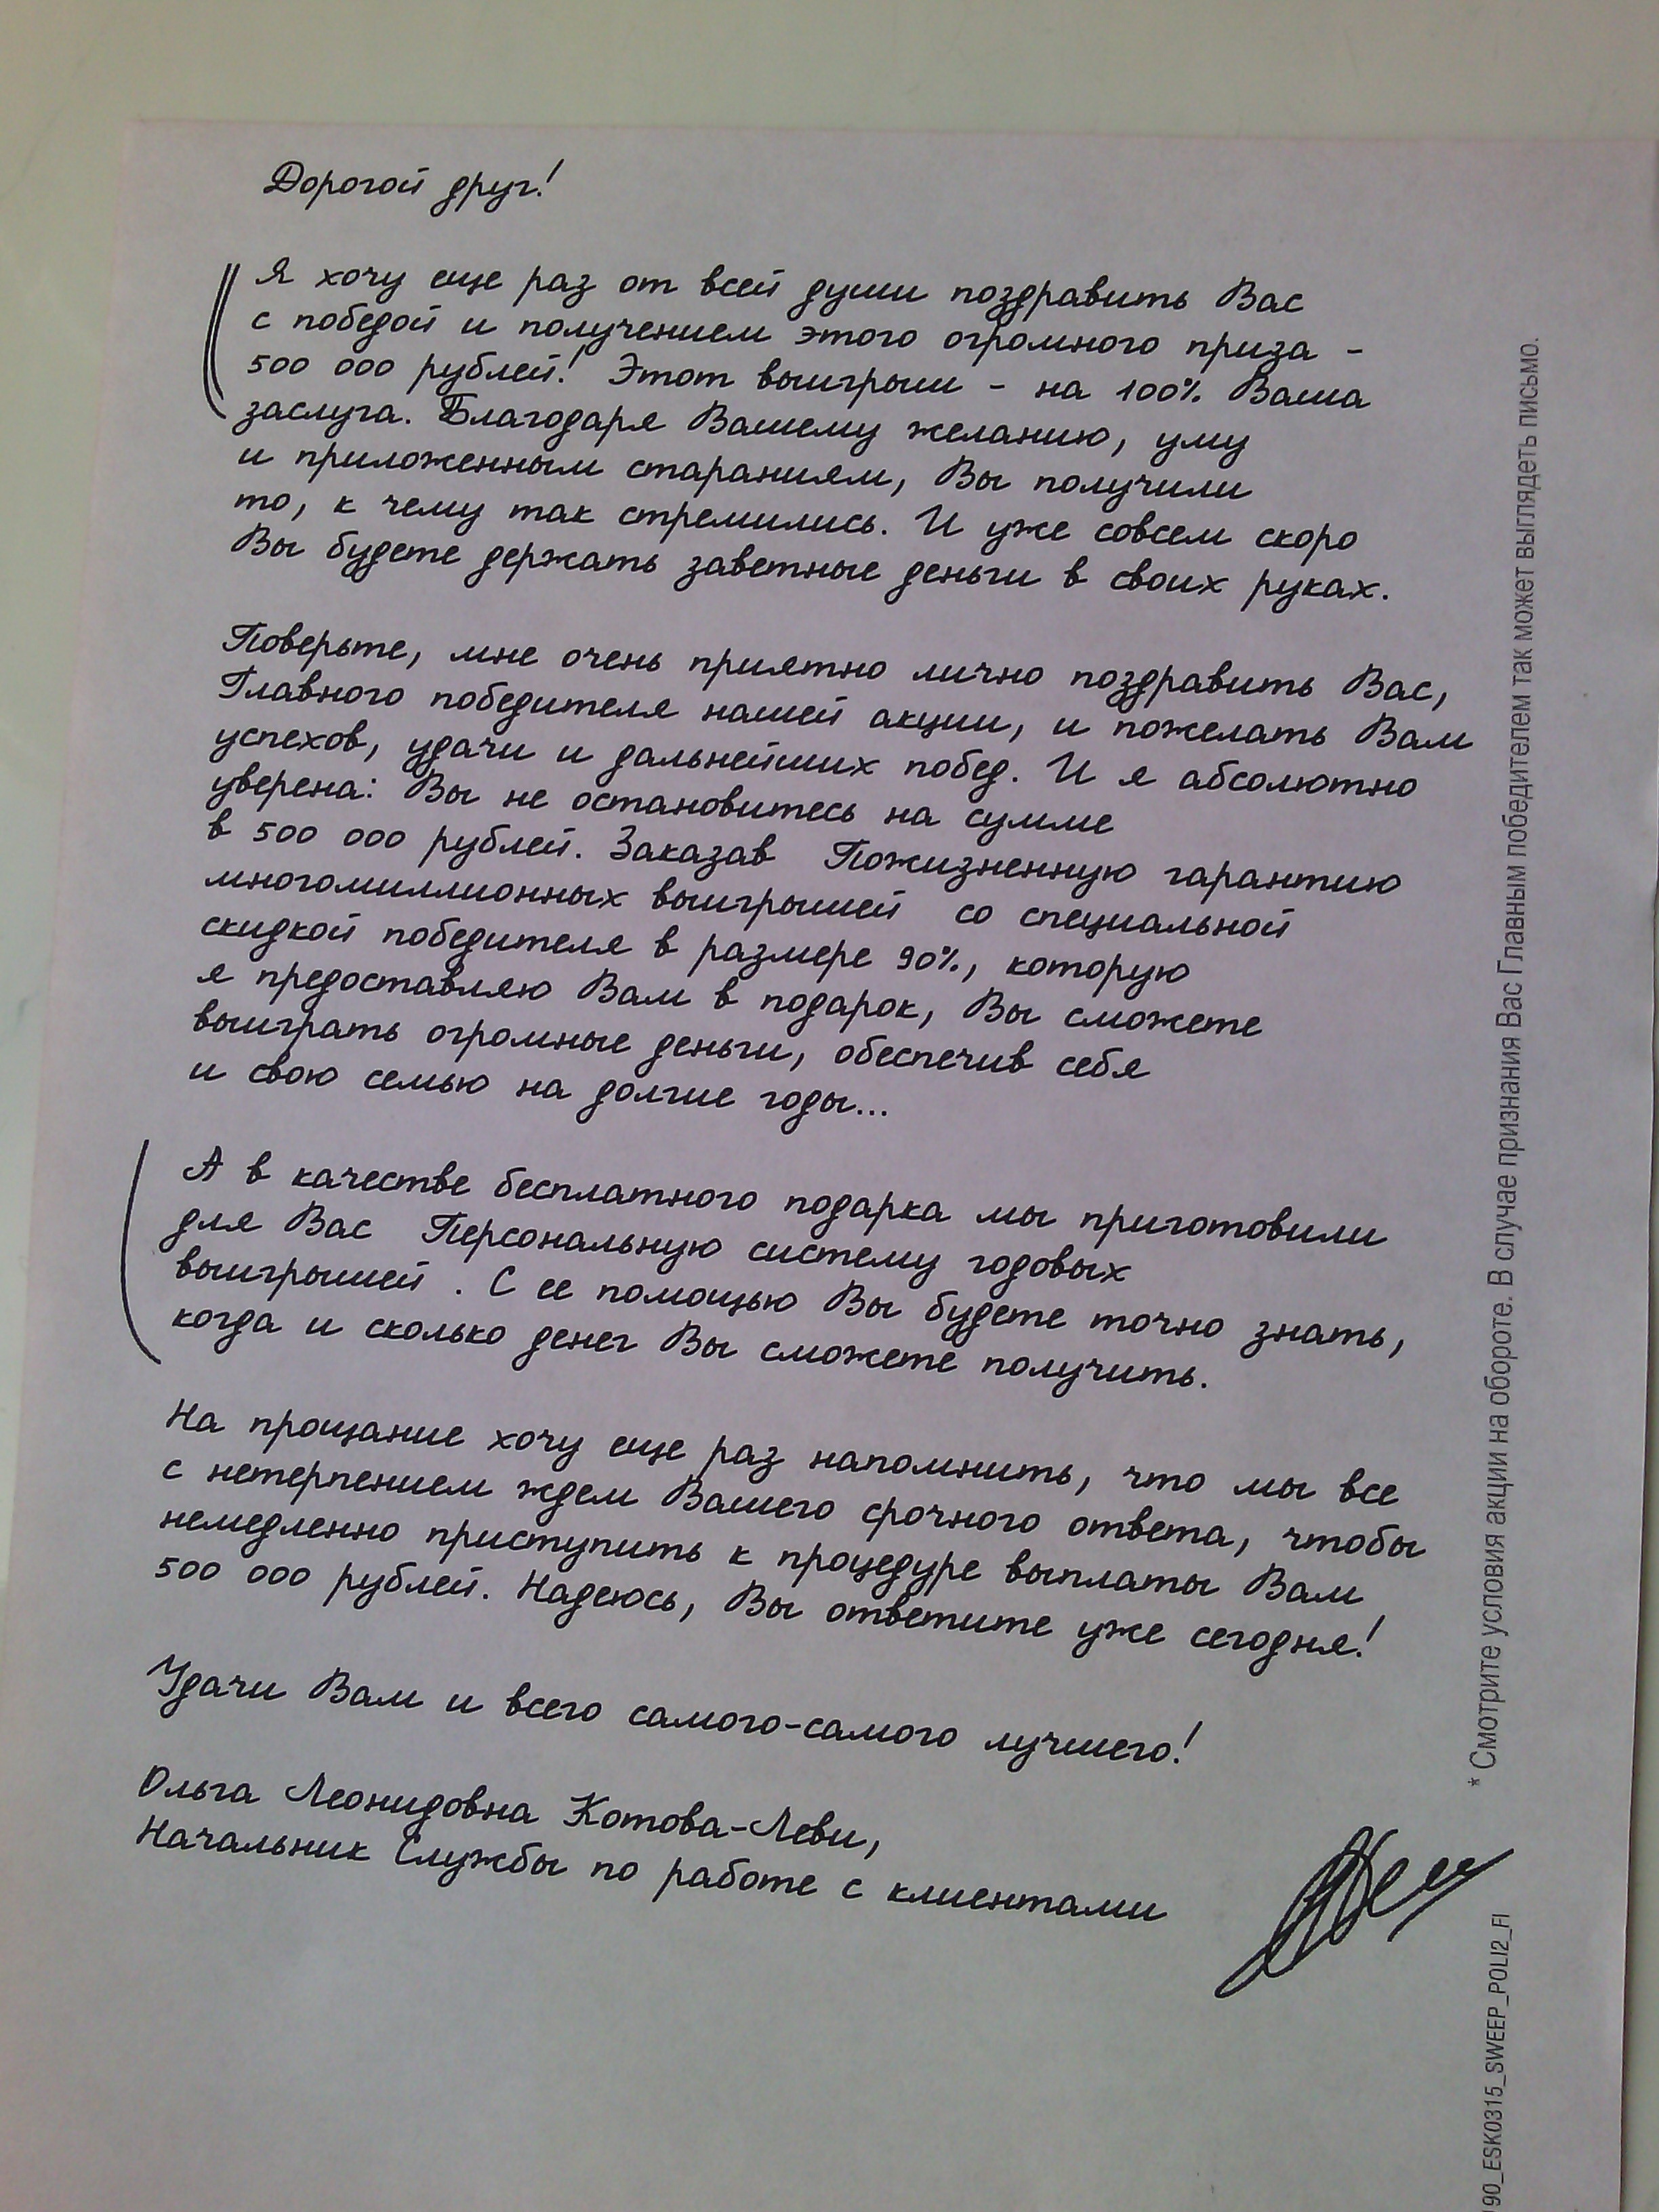 Дорогой друг!
Я хочу еще раз от всей души поздравить Вас
с победой и получением этого огромного приза –
500 000 рублей! Этот выигрыш – на 100% Ваша
заслуга. Благодаря Вашему желанию, уму
и приложенным стараниям, Вы получили
то, к чему так стремились. И уже совсем скоро
Вы будете держать заветные деньги в своих руках.
Поверьте, мне очень приятно лично поздравить Вас,
Главного победителя нашей акции, и пожелать Вам
успехов, удачи и дальнейших побед. И я абсолютно
уверена: Вы не остановитесь на сумме
в 500 000 рублей. Заказав Пожизненную гарантию
многомиллионных выигрышей со специальной
скидкой победителя в размере 90%, которую
я предоставляю Вам в подарок, Вы сможете
выиграть огромные деньги, обеспечив себя
и свою семью на долгие годы...
А в качестве бесплатного подарка мы приготовили
для Вас Персональную систему годовых
выигрышей . С ее помощью Вы будете точно знать,
когда и сколько денег Вы сможете получить.
На прощание хочу еще раз напомнить, что мы все
с нетерпением ждем Вашего срочного ответа, чтобы
немедленно приступить к процедуре выплаты Вам
500 000 рублей. Надеюсь, Вы ответите уже сегодня!
Удачи Вам и всего самого-самого лучшего!
Ольга Леонидовна Котова-Леви,
Начальник Службы по работе с клиентами
* Смотрите условия акции на обороте. В случае признания Вас Главным победителем так может выглядеть письмо.
90_ESK0315_SWEEP_POLI2_FI